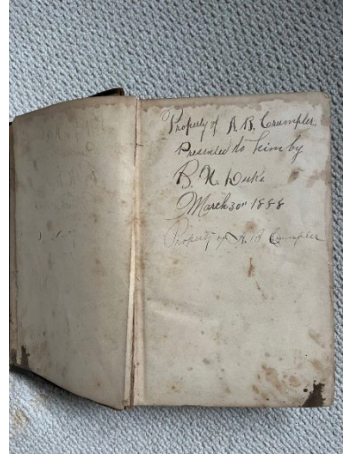 Property of A. B. Crumpler
Presented to him by
B. N. Duke
March 30th 1888
Property of A. B. Crumpler